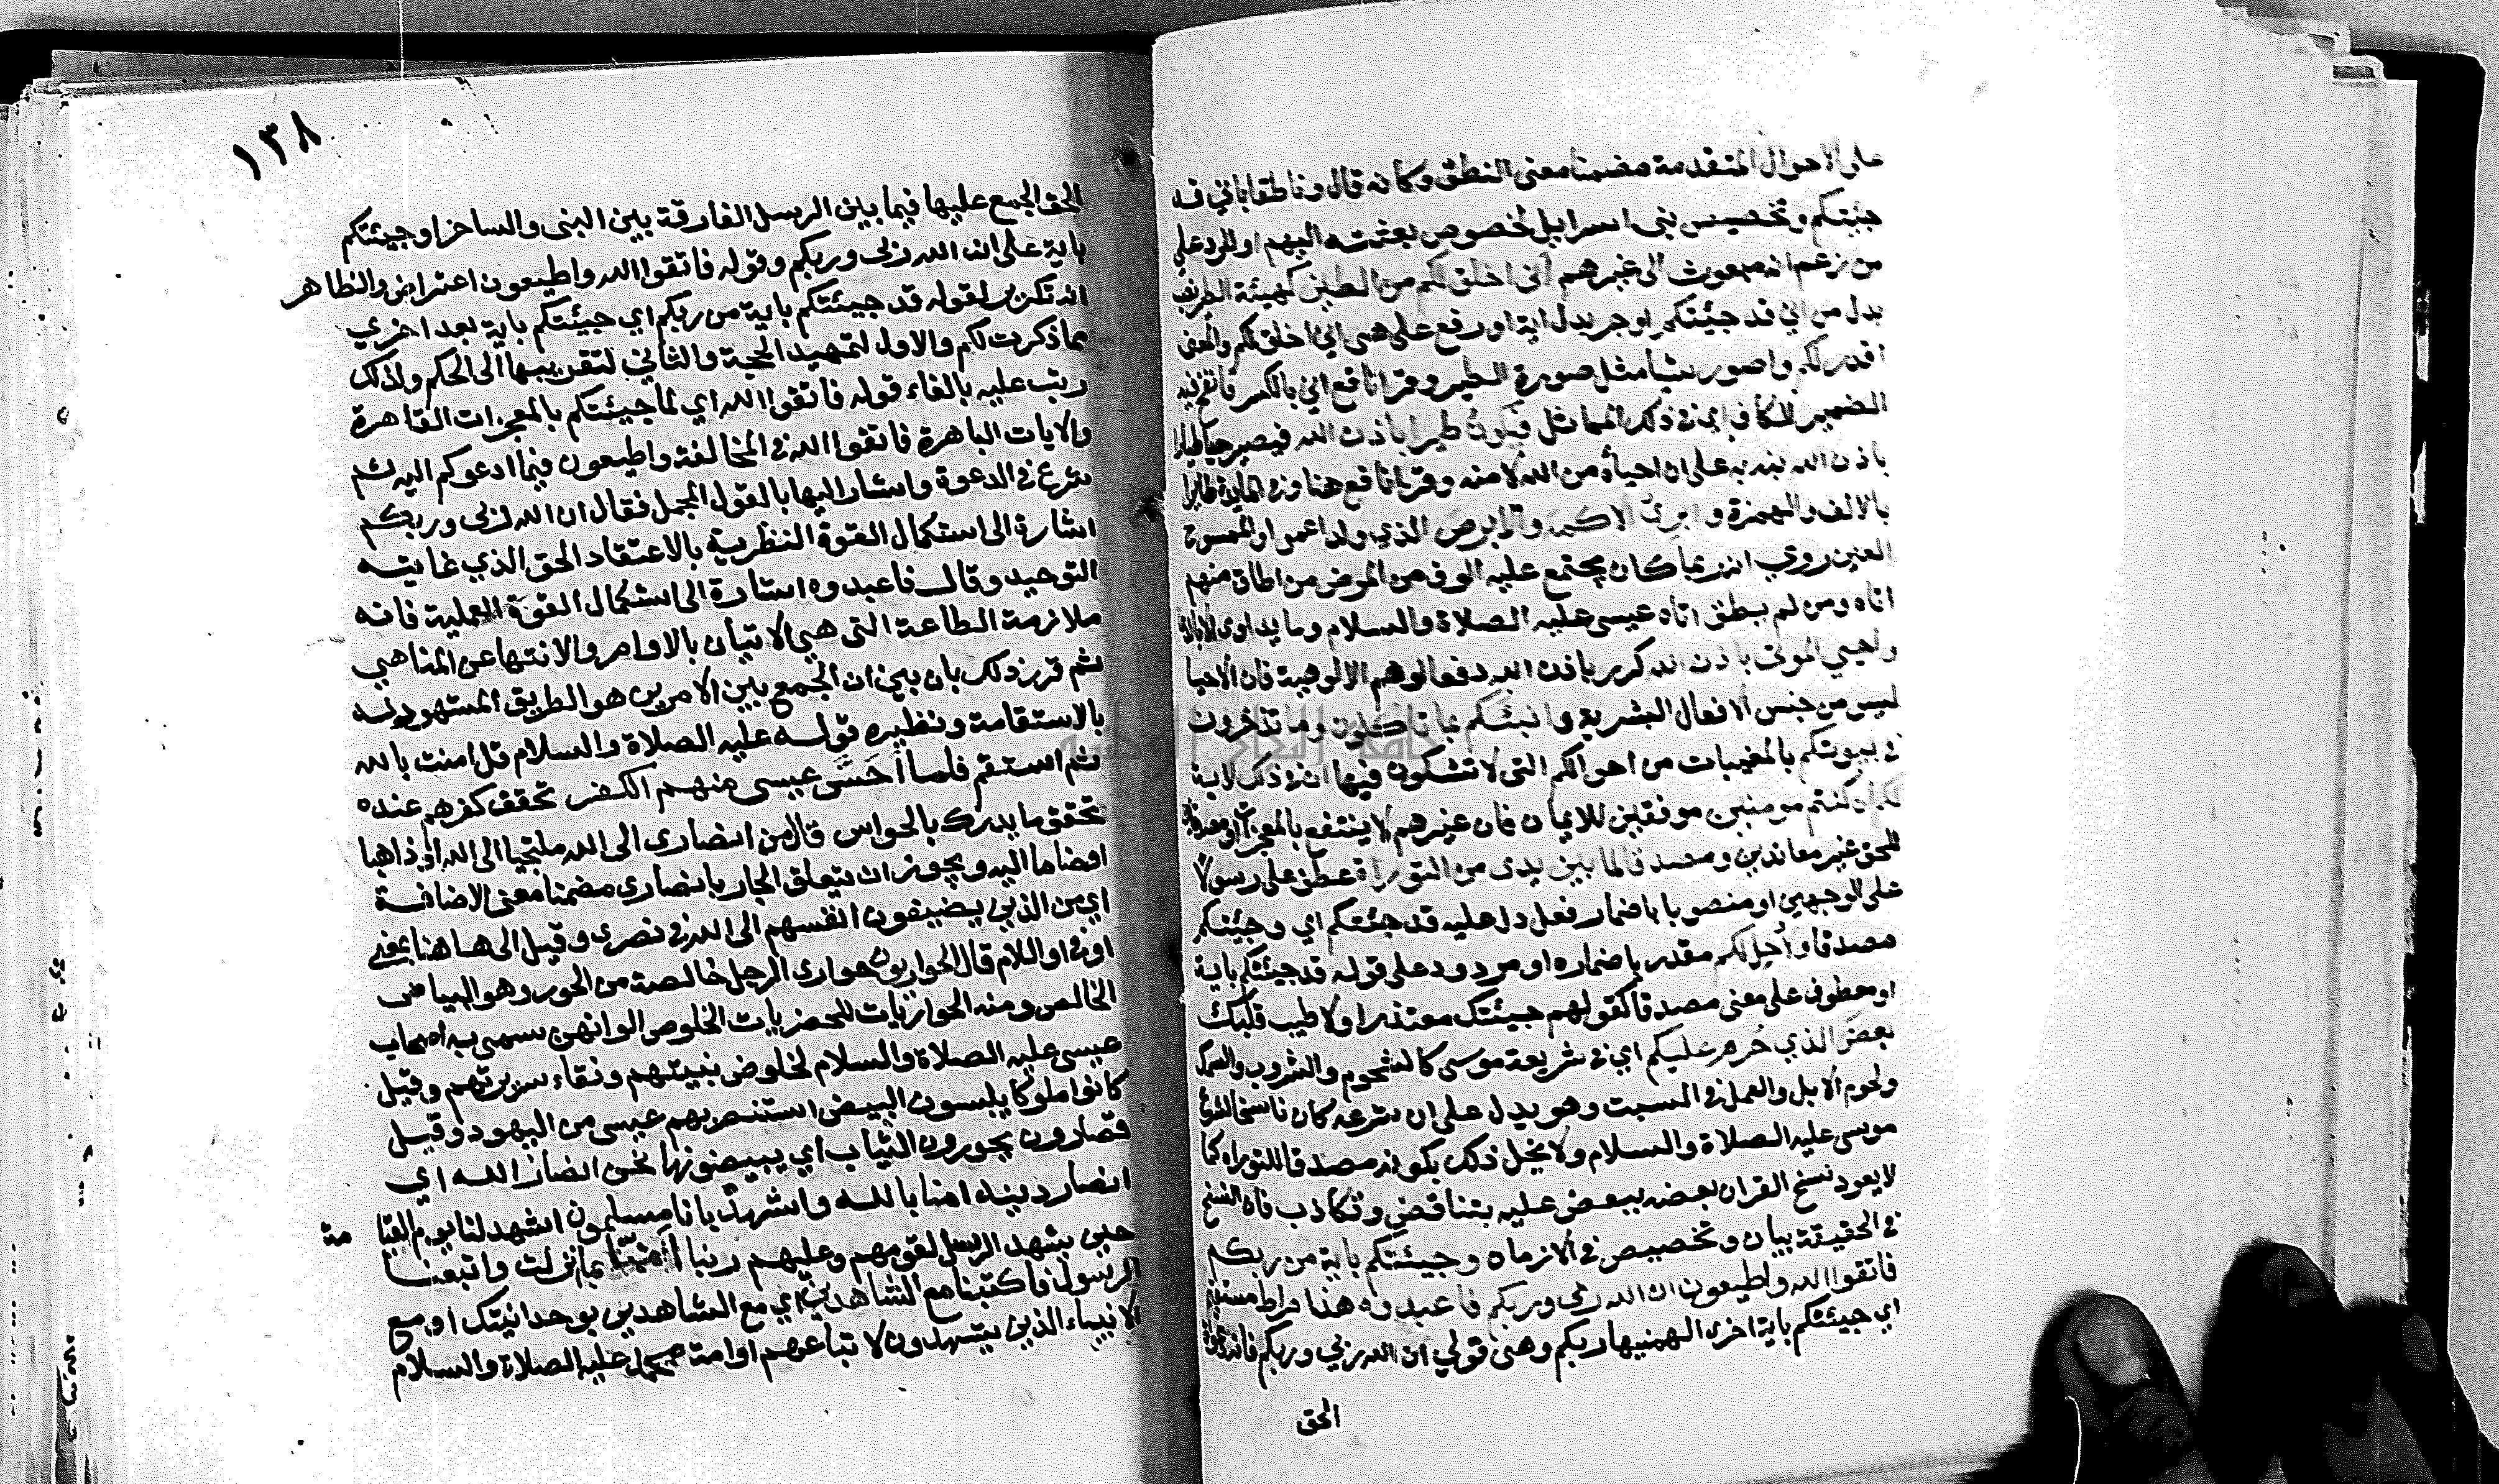 على الاحوال المتقدمة مضمنا معنى النطق وكانه قال وناطقا باني قد
جئتكم وتخصيص بنى اسرايل لخصوص بعثته اليهم او للرد على
من زعم انه مبعوث الى غيرهم أنى اخلق لكم من الطين كهيئة الطير نصب
بدل من اني قد جيئتكم او جر بدل اية او رفع على هى اني اخلق لكم والمعنى
اقدر لكم واصور شيأ مثل صورة الطير وقرا نافع اني بالكسر فانفخ فيه
الضمير للكاف اى فى ذلك المماثل فيكون طيرا باذن الله فيصير حيا طيارا
باذن الله نبه به على ان احياه من الله لا منه وقرا نافع هنا وفى المايدة طايرا
بالالف والهمزة وابرئ الاكمه والابرص الذي ولد اعمى او الممسوح
العين روي انه ربما كان يجتمع عليه الوف من المرضى من اطاق منهم
اتاه ومن لم يطق اتاه عيسى عليه الصلاة والسلام وما يداوى الا بالدعا
واحيي الموتى باذن الله كرر باذن الله دفعا لوهم الالوهية فان الاحيا
ليس من جنس الافعال البشرية وانبئكم بما تاكلون وما تدخرون
فى بيوتكم بالمغيبات من احوالكم التى لا تشكون فيها ان فى ذلك لاية
لكم ان كنتم مومنين موفقين للايمان فان غيرهم لا ينتفع بالمعجزات او مصدقين
للحق غير معاندين ومصدقا لما بين يدى من التوراة عطف على رسولا
على الوجهين او منصوبا باضمار فعل دل عليه قد جئتكم اي وجيئتكم
مصدقا ولأحل لكم مقدر باضماره او مردود على قوله قد جيئتكم باية
او معطوف على معنى مصدقا كقولهم جيئتك معتذرا ولاطيب قلبك
بعض الذي حُرم عليكم اي فى شريعة موسى كالشحوم والثروب والسمك
ولحوم الابل والعمل فى السبت وهو يدل على ان شرعه كان ناسخا لشرع
موسى عليه الصلاة والسلام ولا يخل ذلك بكونه مصدقا للتوراه كما
لا يعود نسخ القران بعضه ببعض عليه بتناقض وتكاذب فان النسخ
فى الحقيقة بيان وتخصيص فى الازمان وجيئتكم باية من ربكم
فاتقوا الله واطيعون ان الله ربى وربكم فاعبدوه هذا صراط مستقيم
اي جيئتكم باية اخرى الهمنيها ربكم وهى قولي ان الله ربي وربكم فانه دعوة
الحق
١٣٨
الحق المجمع عليها فيما بين الرسل الفارقة بين النبى والساحر او جيئتكم
باية على ان الله ربى وربكم وقوله فاتقوا الله واطيعون اعتراض والظاهر
انه تكرير لقوله قد جيئتكم باية من ربكم اي جيئتكم باية بعد اخري
مما ذكرت لكم والاول لتمهيد الحجة والثاني لتقريبها الى الحكم ولذلك
رتب عليه بالفاء قوله فاتقوا الله اي لما جيئتكم بالمعجزات القاهرة
والايات الباهرة فاتقوا الله فى المخالفة واطيعون فيما ادعوكم اليه ثم
شرع فى الدعوة واشار اليها بالقول المجمل فقال ان الله ربى وربكم
اشارة الى استكمال القوة النظرية بالاعتقاد الحق الذي غايته
التوحيد وقال فاعبدوه اشارة الى استكمال القوة العملية فانه
ملازمة الطاعة التى هي الاتيان بالاوامر والانتها عن المناهي
ثم قرر ذلك بان بين ان الجمع بين الامرين هو الطريق المشهود له
بالاستقامة ونظيره قوله عليه الصلاة والسلام قل امنت بالله
ثم استقم فلما أحَسَّ عيسى منهم الكفر تحقق كفرهم عنده
تحقق ما يدرك بالحواس قال من انصارى الى الله ملتجيا الى الله او ذاهبا
او ضاما اليه ويجوز ان يتعلق الجار بانصاري مضمنا معنى الاضافة
اي من الذين يضيفون انفسهم الى الله فى نصرى وقيل الى هاهنا بمعنى
او فى او اللام قال الحواريون حوارى الرجل خالصته من الحور وهو البياض
الخالص ومنه الحواريات للحضريات لخلوص الوانهن سمى به اصحاب
عيسى عليه الصلاة والسلام لخلوص نيتهم ونقاء سريرتهم وقيل
كانوا ملوكا يلبسون البيض استنصر بهم عيسى من اليهود وقيل
قصارون يحورون الثياب اي يبيضونها نحن انصار الله اي
انصار دينه امنا بالله واشهد بانا مسلمون اشهد لنا يوم القيا مة
حين يشهد الرسل لقومهم وعليهم ربنا أمنا بما انزلت واتبعنا
الرسول فاكتبنا مع الشاهدين اي مع الشاهدين بوحدانيتك او مع
الانبياء الذين يشهدون لاتباعهم او امة محمد عليه الصلاة والسلام
جامعة النجاح الوطنية